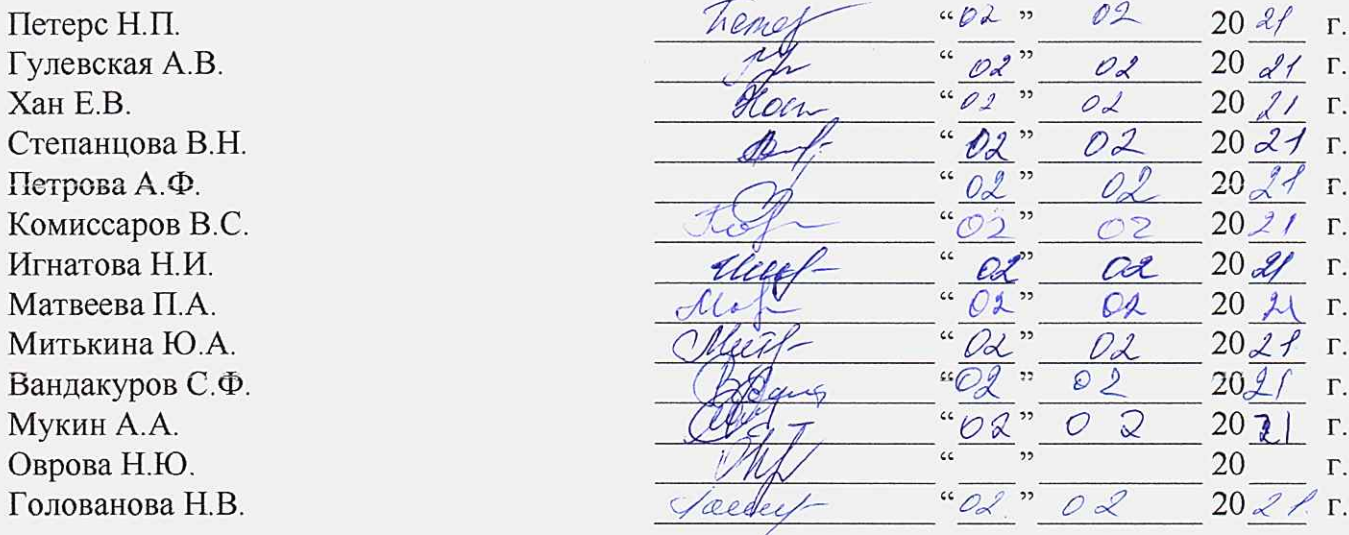 Петерс Н.П. “02” 02 2021 г.
Гулевская А.В. “02” 02 2021 г.
Хан Е.В. “02” 02 2021 г.
Степанцова В.Н. “02” 02 2021 г.
Петрова А.Ф. “02” 02 2021 г.
Комиссаров В.С. “02” 02 2021 г.
Игнатова Н.И. “02” 02 2021 г.
Матвеева П.А. “02” 02 2021 г.
Митькина Ю.А. “02” 02 2021 г.
Вандакуров С.Ф. “02” 02 2021 г.
Мукин А.А. “02” 02 2021 г.
Оврова Н.Ю. “ ” 20 г.
Голованова Н.В. “02” 02 2021 г.